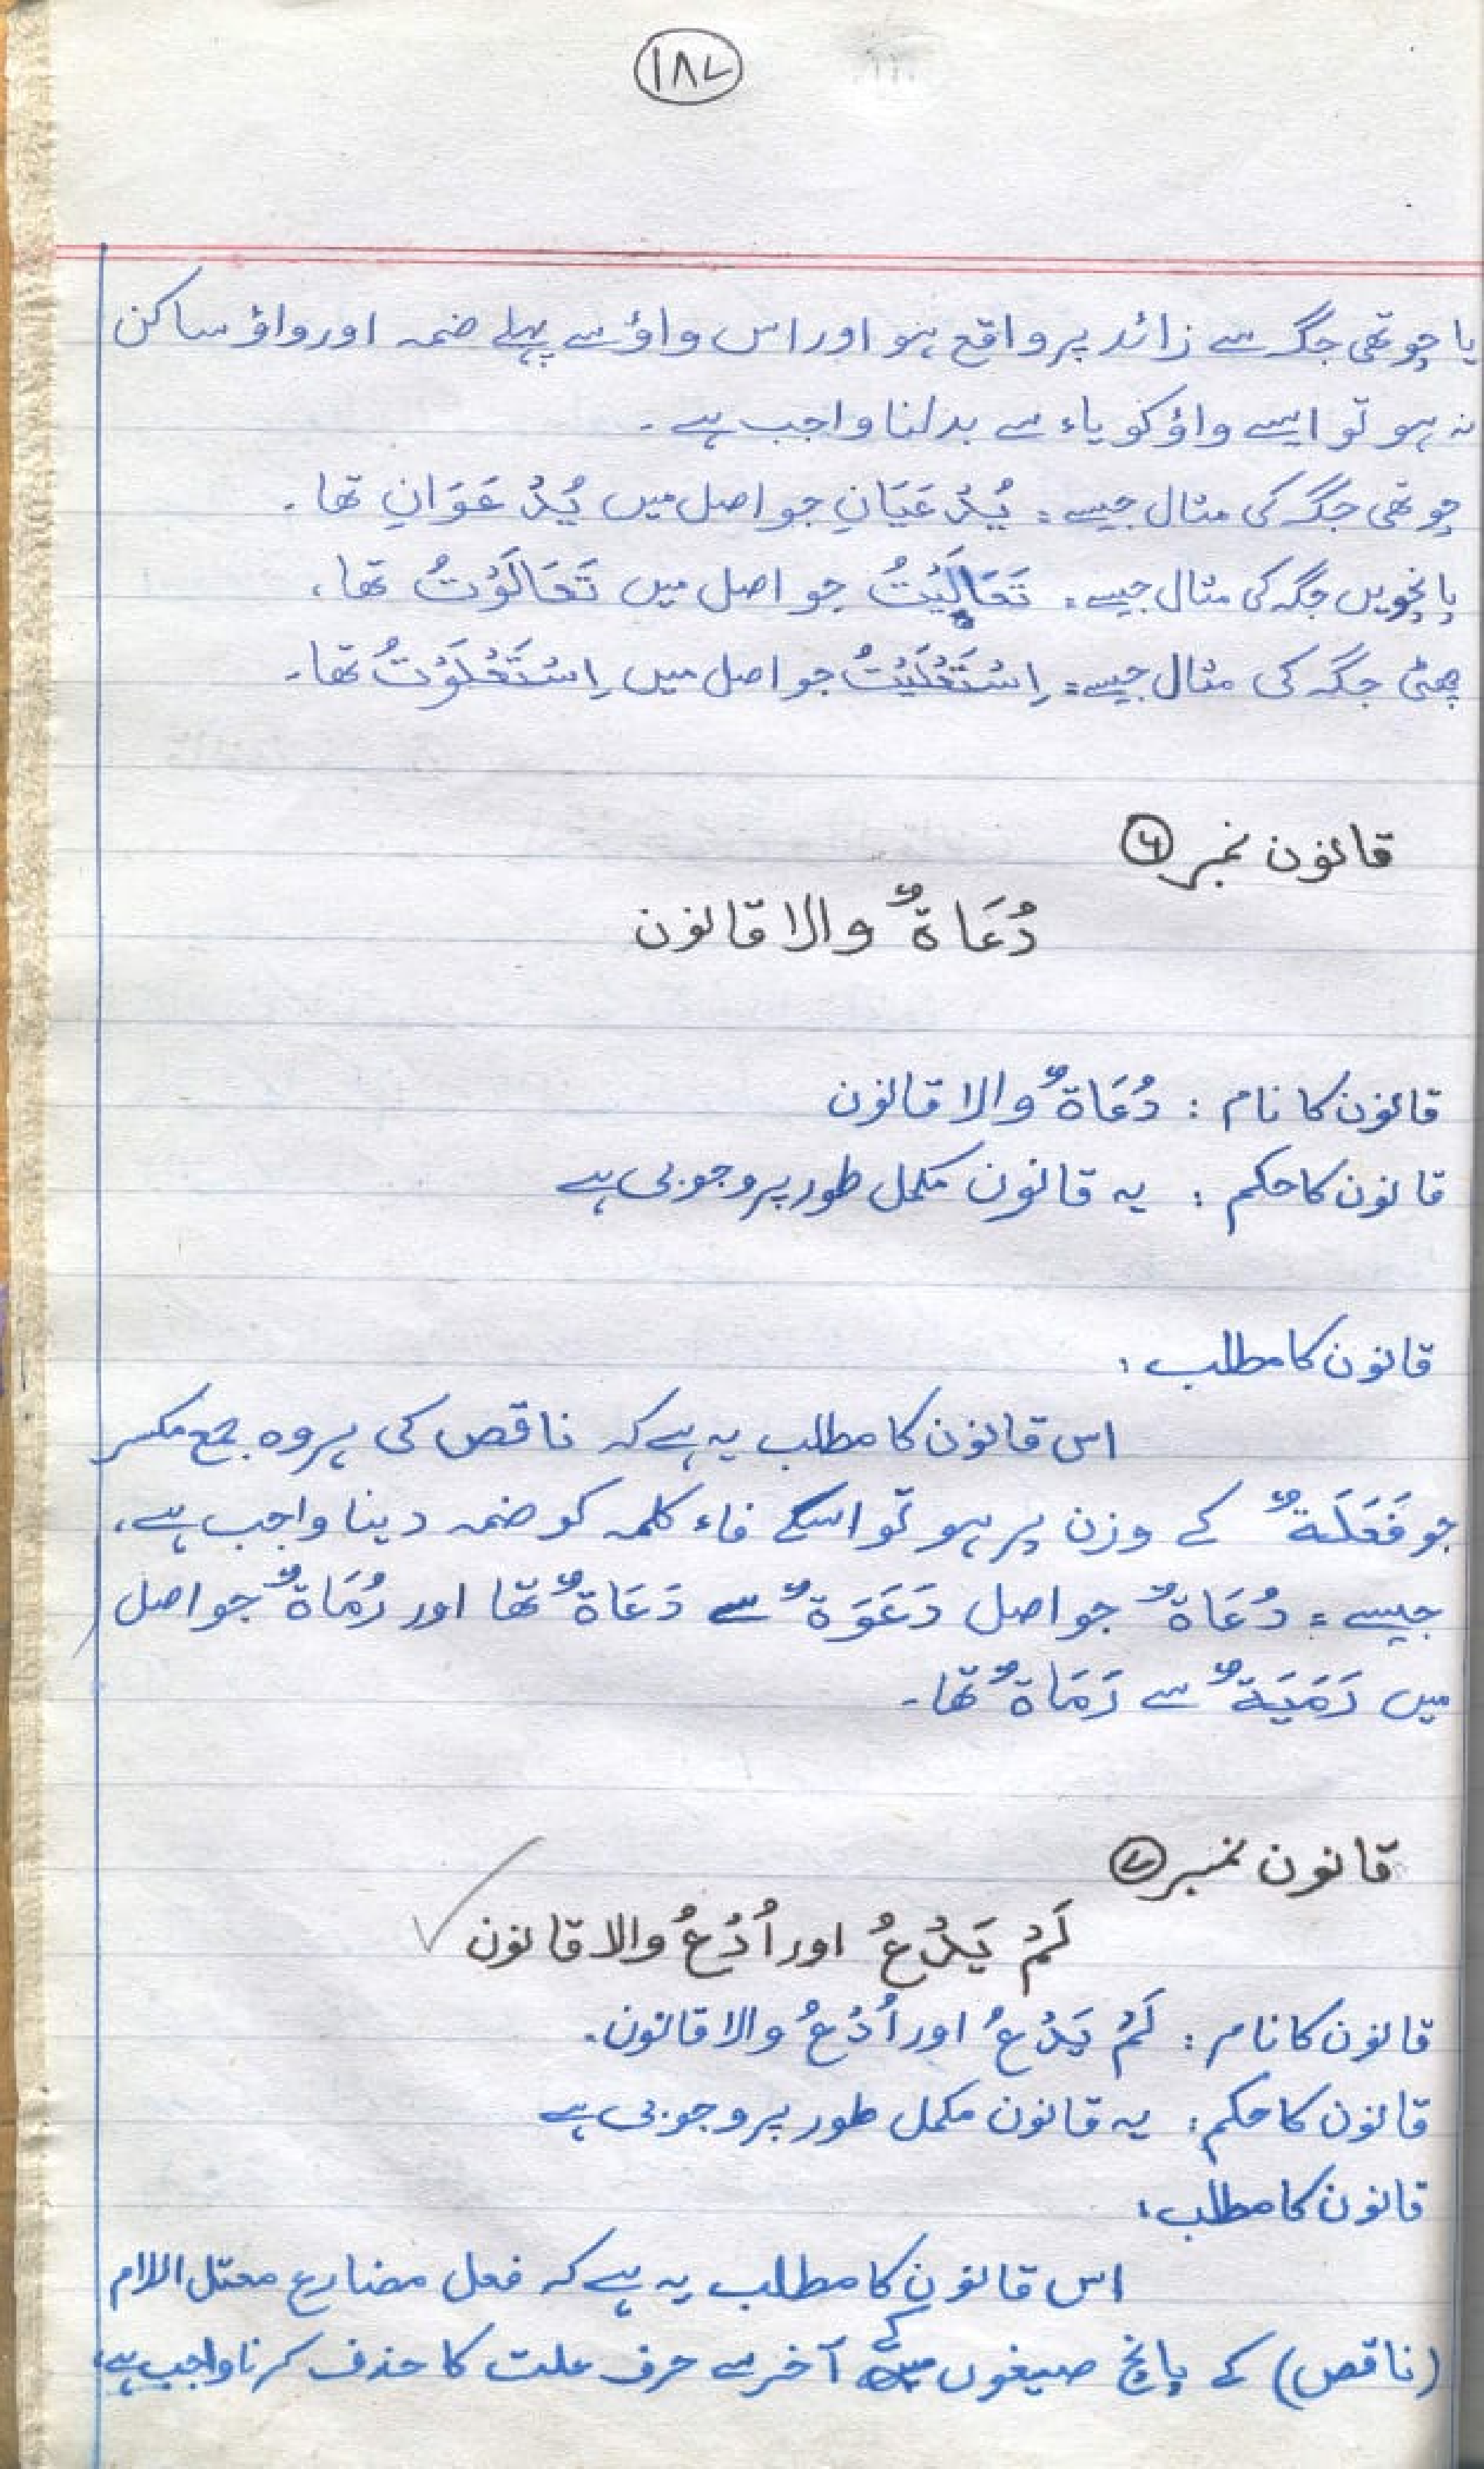 ۱۸۷
یا چوتھی جگہ سے زائد پر واقع ہو اور اس واؤ سے پہلے ضمہ اور واؤ ساکن
نہ ہو تو ایسے واؤ کو یاء سے بدلنا واجب ہے ۔
چوتھی جگہ کی مثال جیسے : یُدْعَیَانِ جو اصل میں یُدْعَوَانِ تھا ۔
پانچویں جگہ کی مثال جیسے : تَعَالَیْتُ جو اصل میں تَعَالَوْتُ تھا ،
چھٹی جگہ کی مثال جیسے : اِسْتَعْلَیْتُ جو اصل میں اِسْتَعْلَوْتُ تھا ۔
قانون نمبر ۶
دُعَاةٌ والا قانون
قانون کا نام : دُعَاةٌ والا قانون
قانون کا حکم : یہ قانون مکمل طور پر وجوبی ہے
قانون کا مطلب :
اس قانون کا مطلب یہ ہے کہ ناقص کی ہر وہ جمع مکسر
جو فَعَلَةٌ کے وزن پر ہو تو اسکے فاء کلمہ کو ضمہ دینا واجب ہے ،
جیسے : دُعَاةٌ جو اصل دَعَوَةٌ سے دَعَاةٌ تھا اور رُمَاةٌ جو اصل
میں رَمَیَةٌ سے رَمَاةٌ تھا ۔
قانون نمبر ۷
لَمْ یَدْعُ اور اُدْعُ والا قانون
قانون کا نام : لَمْ یَدْعُ اور اُدْعُ والا قانون ۔
قانون کا حکم : یہ قانون مکمل طور پر وجوبی ہے
قانون کا مطلب :
اس قانون کا مطلب یہ ہے کہ فعل مضارع معتل اللام
(ناقص) کے پانچ صیغوں کے آخر سے حرف علت کا حذف کرنا واجب ہے ،